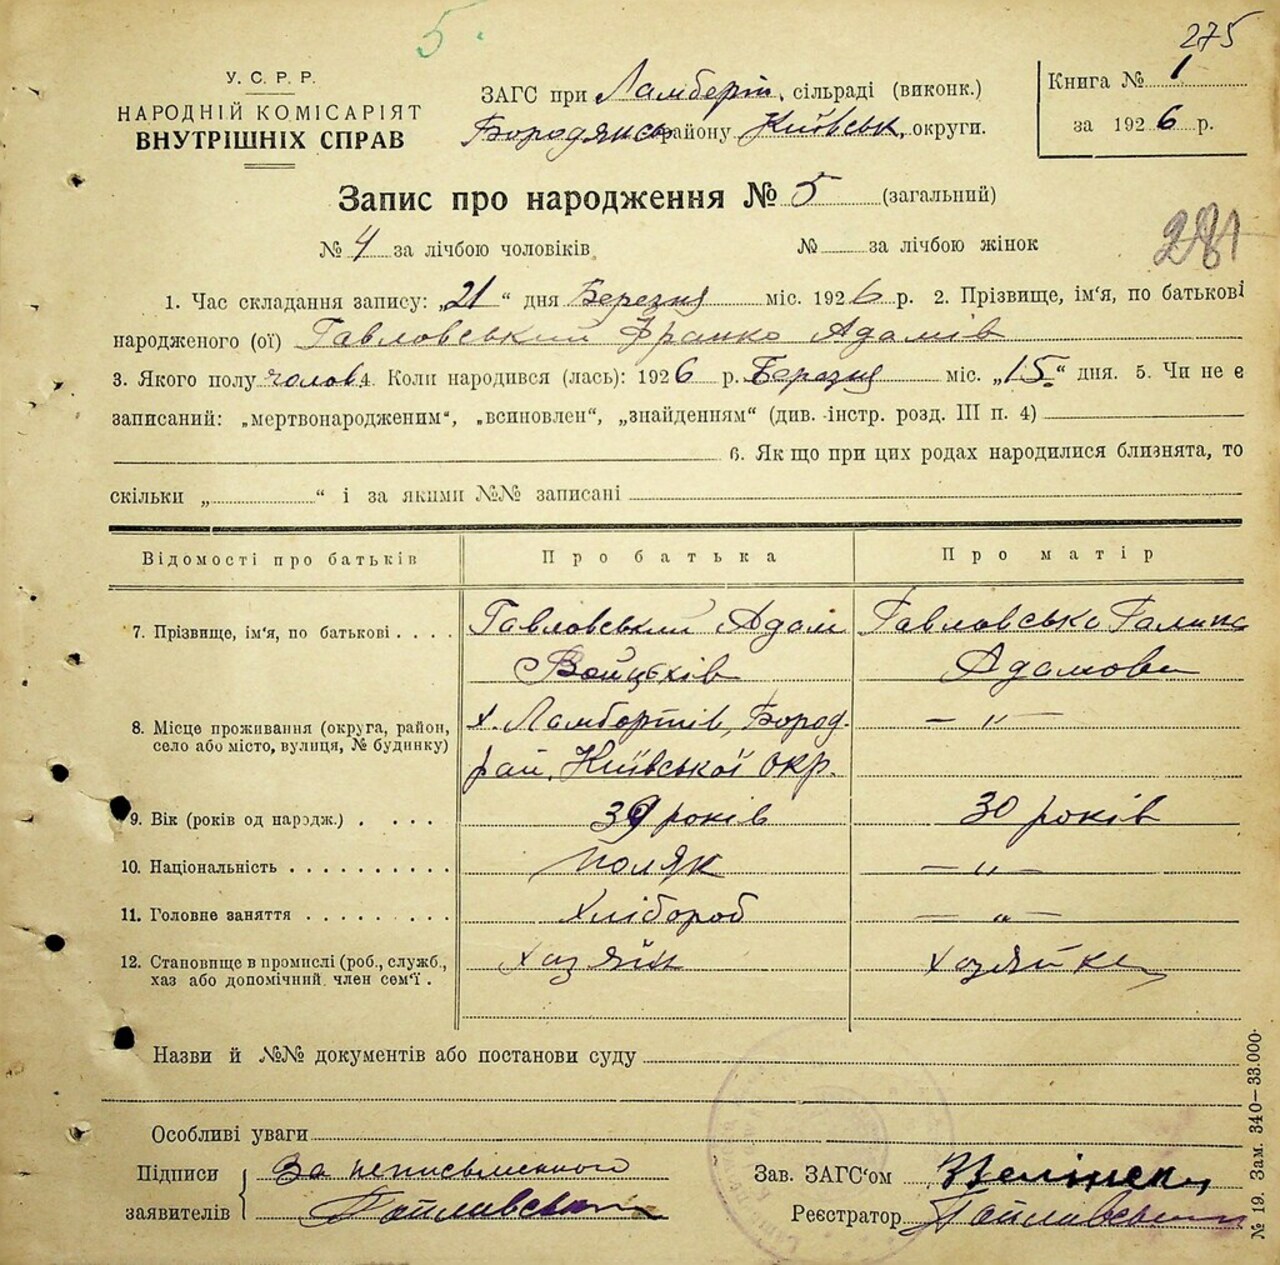 5.
275
У. С. Р. Р.
НАРОДНІЙ КОМІСАРІЯТ
ВНУТРІШНІХ СПРАВ
ЗАГС при Ламберт. сільраді (виконк.)
Бородянськ району Київськ. округи.
Книга № 1
за 1926 р.
Запис про народження № 5 (загальний)
№ 4 за лічбою чоловіків
№ за лічбою жінок
281
1. Час складання запису: „21“ дня Березня міс. 1926 р. 2. Прізвище, ім‘я, по батькові
народженого (ої) Гавловський Франко Адамів
3. Якого полу чолов. 4. Коли народився (лась): 1926 р. Березня міс. „15“ дня. 5. Чи не є
записаний: „мертвонародженим“, „всиновлен“, „знайденням“ (див. інстр. розд. III п. 4)
6. Як що при цих родах народилися близнята, то
скільки „ “ і за якими №№ записані
Відомості про батьків Про батька Про матір
7. Прізвище, ім‘я, по батькові . . . . Гавловський Адам Гавловська Галина
Войцехів Адамова
8. Місце проживання (округа, район, х. Ламбертів, Бород. — „ —
село або місто, вулиця, № будинку) рай. Київської окр.
9. Вік (років од народж.) . . . . 39 років 30 років
10. Національність . . . . . . . . . . поляк — „ —
11. Головне заняття . . . . . . . . . Хлібороб — „ —
12. Становище в промислі (роб., служб., хазяйн хазяйка
хаз або допомічний член сем‘ї .
Назви й №№ документів або постанови суду
Особливі уваги
Підписи За неписьменного
заявителів
Зав. ЗАГС‘ом
Реєстратор
№ 19. Зам. 340–33.000.